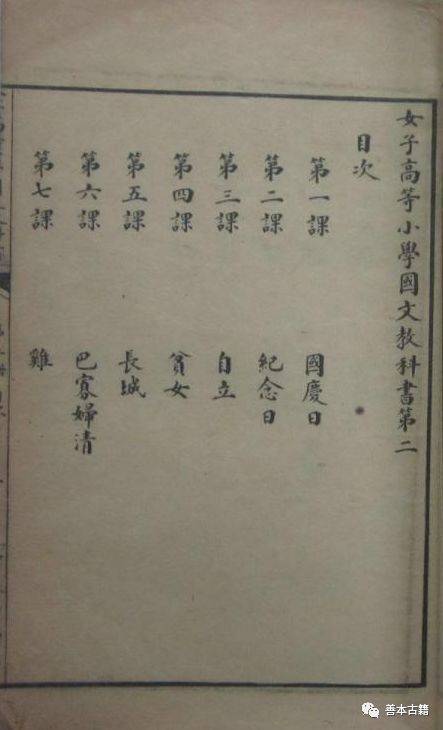 女子高等小學國文教科書第二
目次
第一課 國慶日
第二課 紀念日
第三課 自立
第四課 貧女
第五課 長城
第六課 巴寡婦清
第七課 雞
善本古籍